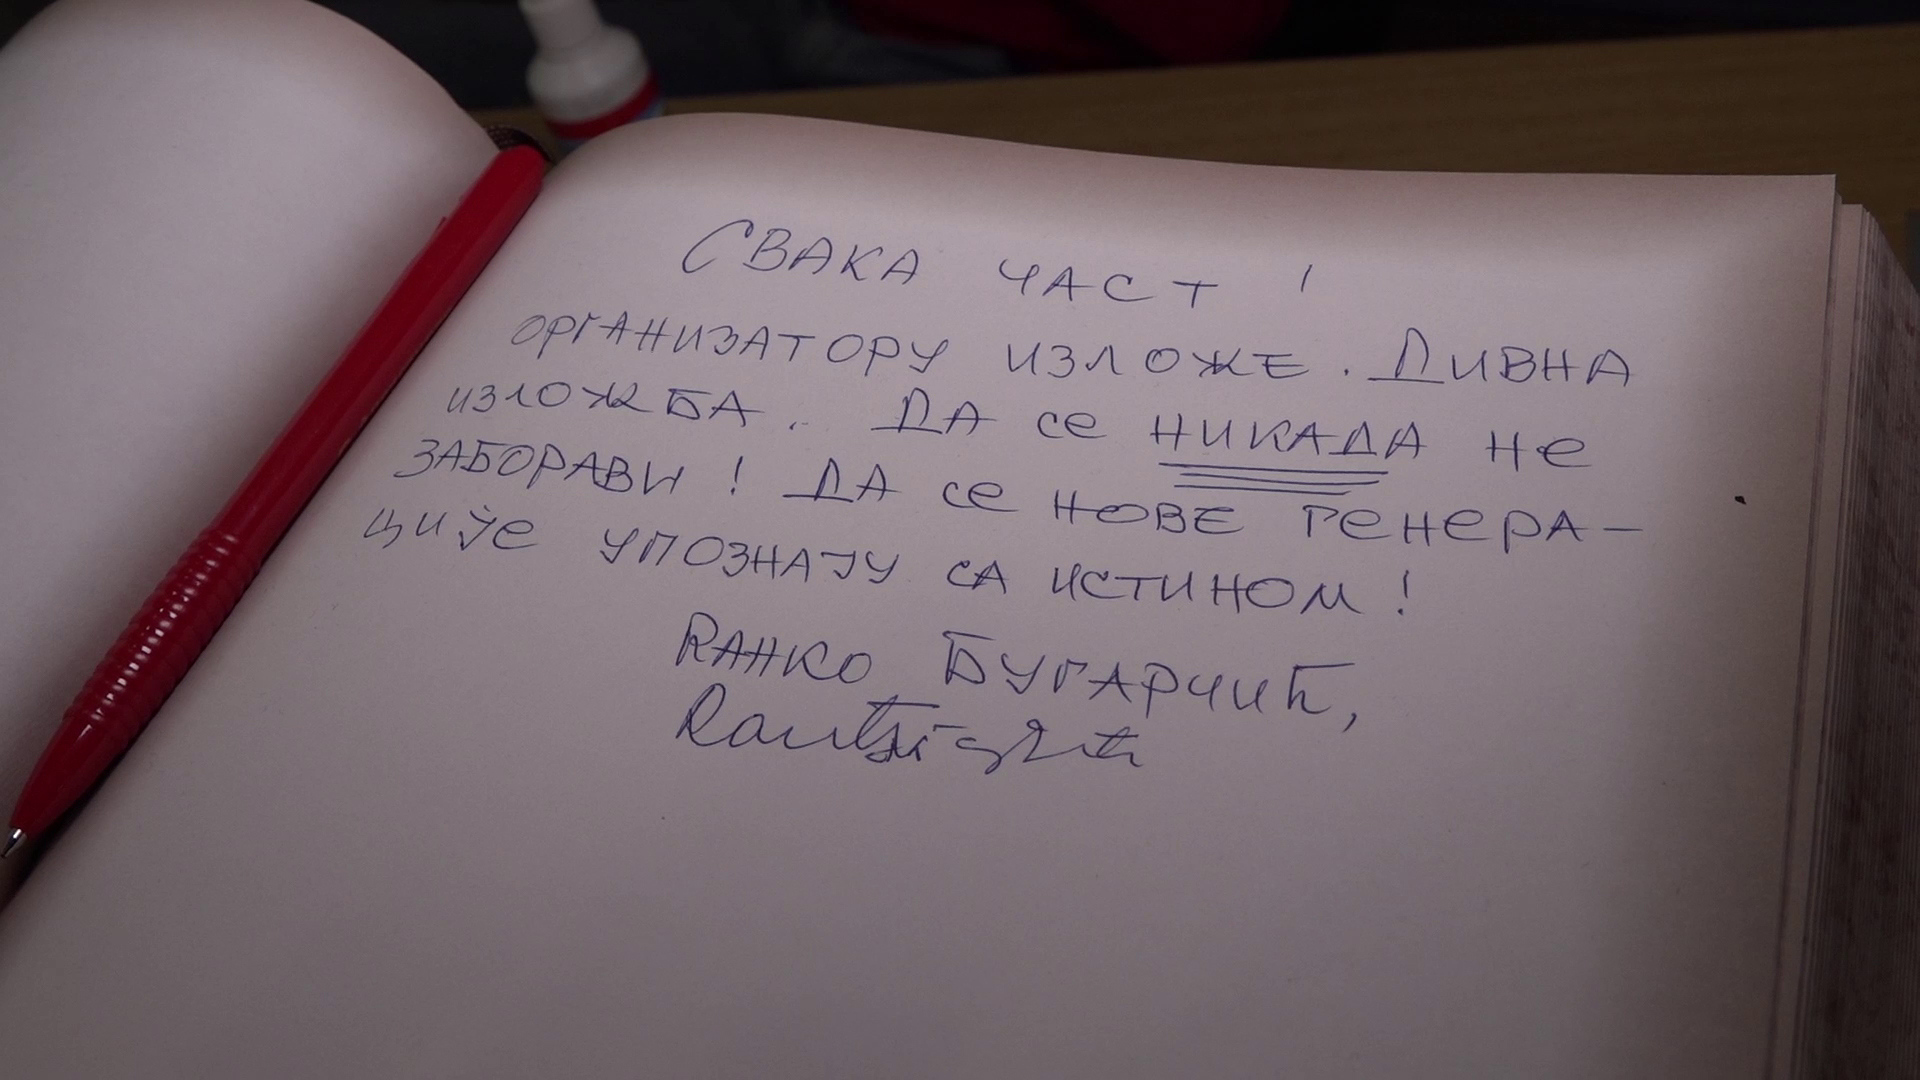 СВАКА ЧАСТ !
ОРГАНИЗАТОРУ ИЗЛОЖЕ. ДИВНА
ИЗЛОЖБА. ДА СЕ НИКАДА НЕ
ЗАБОРАВИ ! ДА СЕ НОВЕ ГЕНЕРА-
ЦИЈЕ УПОЗНАЈУ СА ИСТИНОМ !
RАНКО БУГАРЧИЋ,